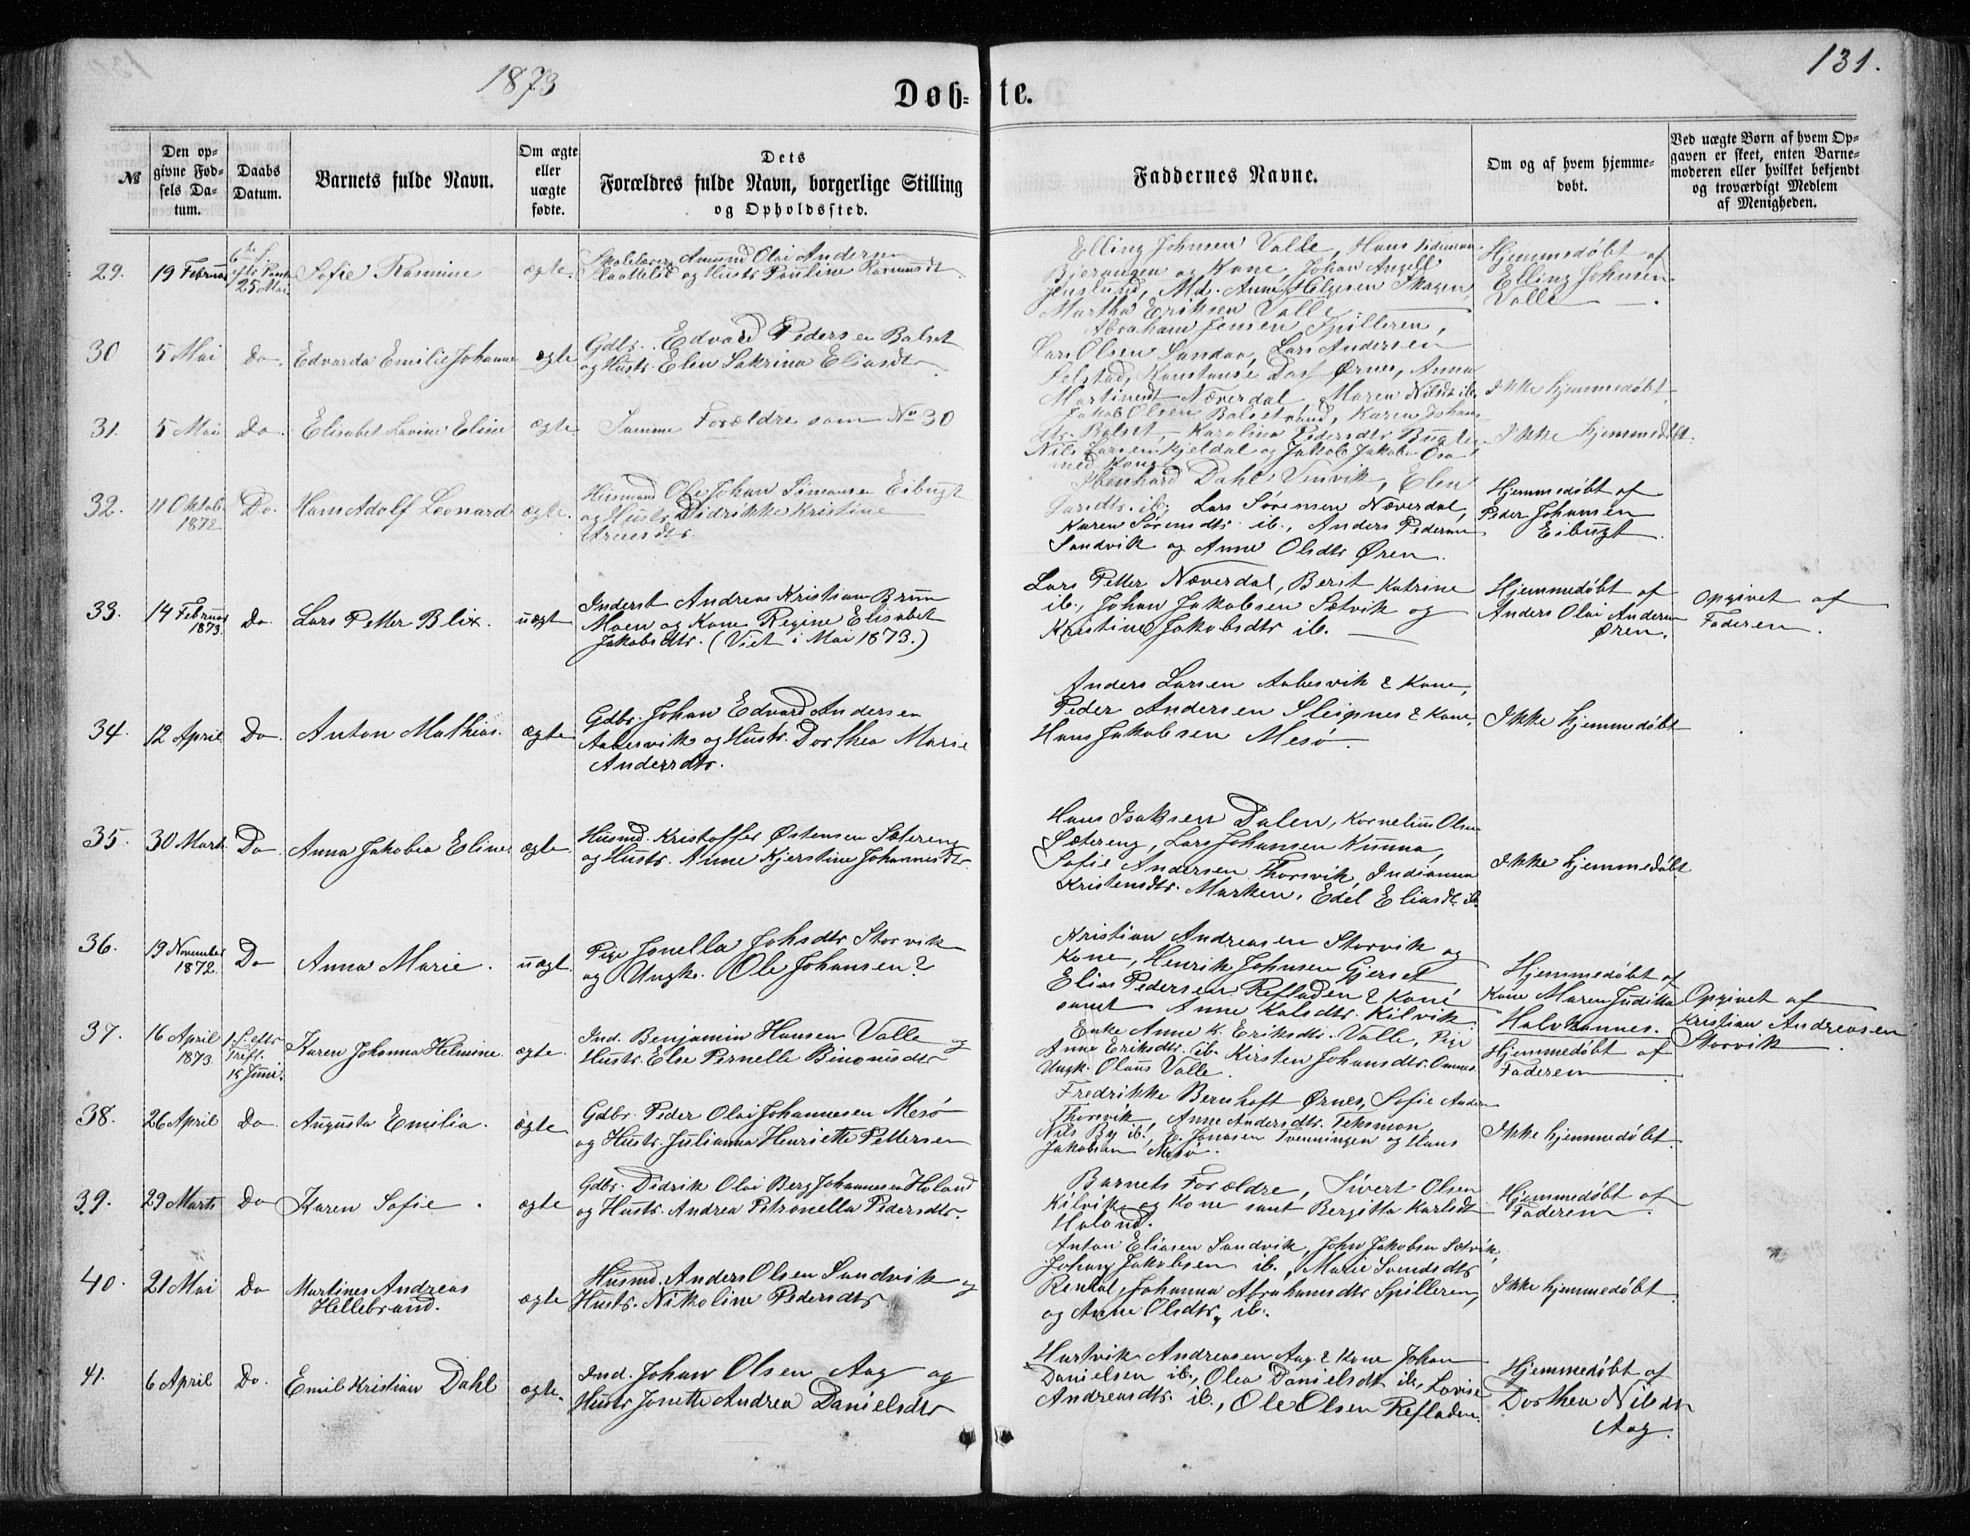 1873
131.
Døb= te.
№
Den op-
givne Fød-
sels Da-
tum.
Daabs
Datum.
Barnets fulde Navn.
Om ægte
eller
uægte
fødte.
Dets
Forældres fulde Navn, borgerlige Stilling
og Opholdssted.
Faddernes Navne.
Om og af hvem hjemme-
døbt.
Ved uægte Børn af hvem Op-
gaven er skeet, enten Barne-
moderen eller hvilket bekjendt
og troværdigt Medlem
af Menigheden.
29.
19 Februar
25 Mai
Sofie Rasmine
ægte.
Skolelærer Amund Olai Andersen
og Hustr. Pauline Rasmusdt.
Elling Johnsen Valle, Hans Pedersen
og Kone, Johan Angell
Md. Anne Helgesen Skagen,
Martha Eriksen Valle
Hjemmedøbt af
Elling Johnsen
Valle
30
5 Mai
Do.
Edvarda Emilie Johanna
ægte
Gdbr. Edvard Pedersen Balset
og Hustr. Elen Sakrina Eliasdtr.
Abraham Jensen Spilderen,
Lars Olsen Sandaa, Lars Andersen
Selstad, Konstanse Dass Ørnes, Anna
Martinusdt Næverdal, Maren Nilsdt ib.
Ikke hjemmedøbt
31.
5 Mai
Do.
Elisabet Lavine Eline
ægte
Samme Forældre som No 30
Jakob Olsen Balset, Karen Johans
dtr. Balset, Karolina Pedersdtr.
Nils Larsen Kjeldal og Jakob Jakobs
med Kone
Ikke hjemmedøbt.
32.
11 Oktob.
1872
Do.
Hans Adolf Leonard
ægte.
Husmand Ole Johan Simonsen Eibugt
og Hustr. Didrikke Kristine
Arnesdtr.
Dahl Vinvik, Elen
Larsdtr. ib., Lars Sørensen Næverdal,
Karen Sørensdtr. ib., Anders Pedersen
Sandvik og Anne Olsdtr Øren.
Hjemmedøbt af
Peder Johansen
Eibugt.
33.
14 Februar
1873.
Do
Lars Petter Blix.
uægt
Inderst Andreas Kristian Brun
Moen og Kone Regine Elisabet
Jakobsdtr. (Viet i Mai 1873.)
Lars Petter Næverdal, Berit Katrine
ib., Johan Jakobsen Sætvik og
Kristine Jakobsdtr ib.
Hjemmedøbt af
Anders Olai Andersen
Øren.
Opgivet af
Faderen.
34.
12 April
Do.
Anton Mathias.
ægte
Gdbr. Johan Edvard Andersen
Aabesvik og Hustr. Dorthea Marie
Andersdtr.
Anders Larsen Aabesvik & Kone,
Peder Andersen Sleipnes & Kone,
Hans Jakobsen Mesø.
Ikke hjemmedøbt
35.
30 Marts
Do
Anna Jakobea Eline.
ægte
Husmd. Kristoffer Østensen Sætereng
og Hustr. Anne Kjerstine Johannisdtr
Hans Isaksen Dalen, Kornelius Olsen
Sætereng, Lars Johansen Kunna,
Sofie Andersen Thorsvik, Indianna
Kristensdtr. Marken, Edel Eliasdt. ib.
Ikke hjemmedøbt
36.
19 November
1872.
Do
Anna Marie.
uægt.
Pige Jonella Johsdtr Storvik
og Ungk. Ole Johansen?
Kristian Andreasen Storvik og
Kone, Henrik Johnsen Gjerset
Elias Pedersen Refladen & Kone
samt Anne Kalsdtr Kilvik
Hjemmedøbt af
Kone Maren Judika
Halvhannes.
Opgivet af
Kristian Andreasen
Storvik
37.
16 April
1873.
1. S. eftr
Tref.
15 Juni
Karen Johanna Helmine.
ægte.
Ind. Benjamin Hansen Valle og
Hustr. Else Pernelle Binonisdtr
Enke Anne K. Eriksdtr. Valle, Pige
Anne Eriksdtr. ib. Kirsten Johansdtr.
Ungk. Olaus Valle.
Hjemmedøbt af
Faderen
38.
26 April
Do.
Augusta Emilia.
ægte
Gdbr. Peder Olai Johannesen Mesø
og Hustr. Julianna Henriette Pettersen
Fredrikke Bernhoft Ørnes, Sofie Anders
Thorsvik, Anne Andersdtr. Teksmon,
Nils By ib., E. Jonasen Tvenningen og Hans
Jakobsen Mesø.
Ikke hjemmedøbt.
39.
29 Marts
Do
Karen Sofie.
ægte
Gdbr. Didrik Olai Berg Johannesen Høland
og Hustr. Andrea Petronella Pedersdtr.
Barnets Forældre, Sivert Olsen
Kilvik og Kone samt Bergitta Karlsdt
Høland.
Hjemmedøbt af
Faderen.
40.
21 Mai
Do
Martines Andreas
Hellebrand.
ægte
Husmd. Anders Olsen Sandvik og
Hustr. Nikoline Pedersdtr
Anton Eliasen Sandvik, John Jakobsen Sætvik,
Johan Jakobsen ib., Marie Svendsdtr
Rendal, Johanna Abrahamsdtr Spilderen,
og Anne Olsdtr, ib.
Ikke hjemmedøbt
41.
6 April
Do.
Emil Kristian Dahl
ægte.
Ind. Johan Olsen Aag og
Hustr Jonette Andrea Danielsdtr
Hartvik Andreasen Aag & Kone Johan
Danielsen ib., Olea Danielsdt ib., Lovise
Andreasdtr. ib., Ole Olsen Refladen.
Hjemmedøbt af
Dorthea Nilsdtr
Aag.